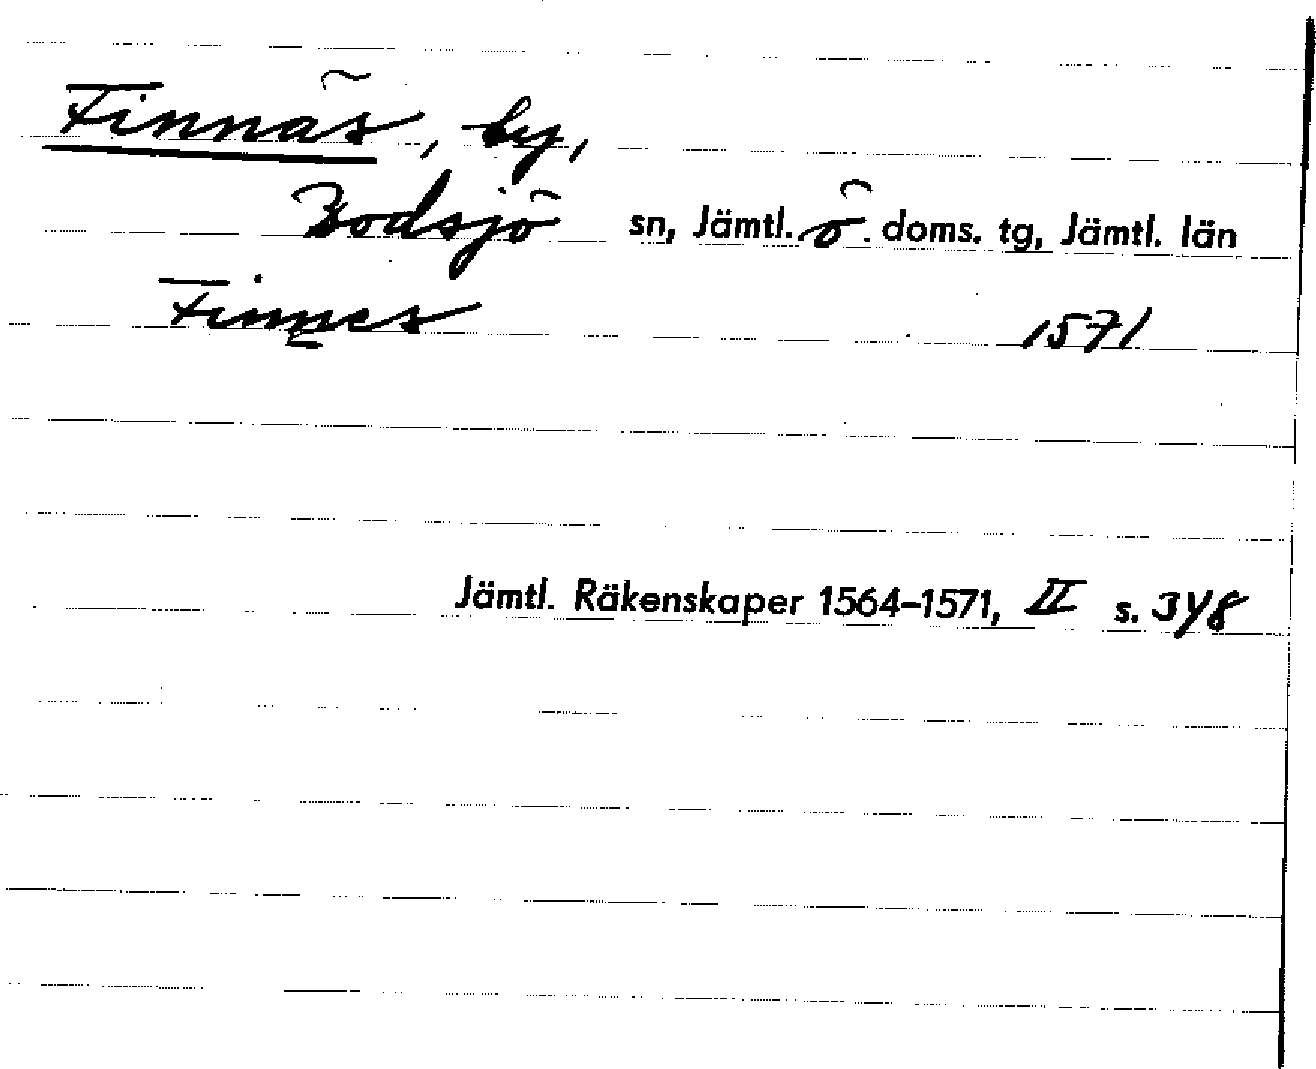 Finnäs, by,
Bodsjö sn, Jämtl. ö. doms. tg, Jämtl. län
Finnes 1571
Jämtl. Räkenskaper 1564-1571, II s. 348